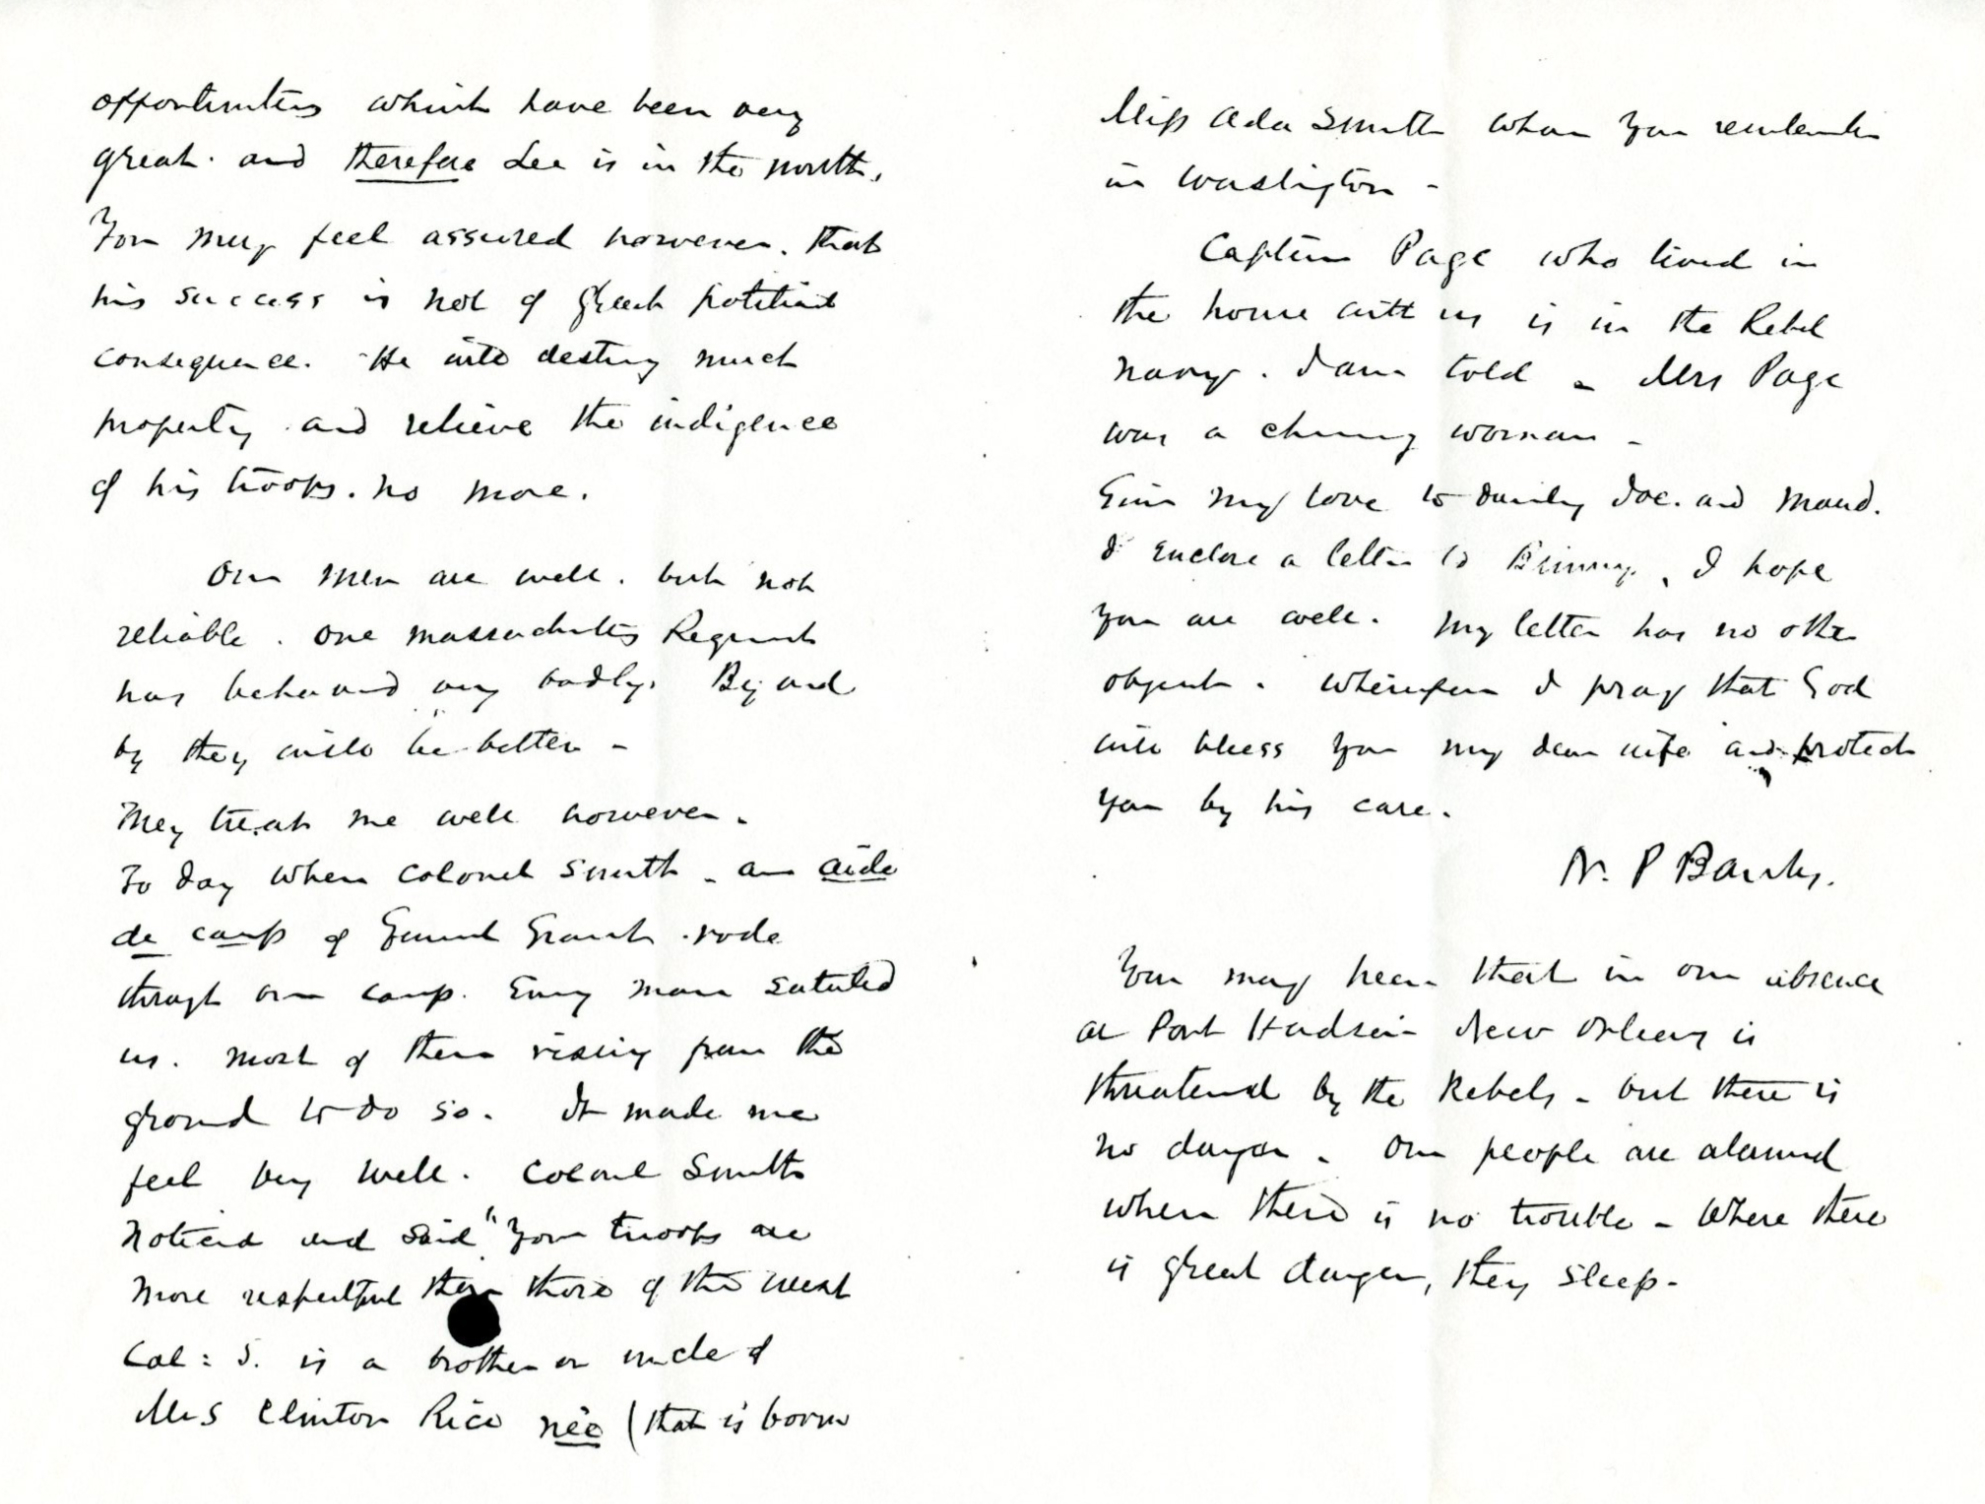 opportunities which have been very
great. and therefore Lee is in the north.
You may feel assured however. that
his success is not of great political
consequence. He will destroy much
property and relieve the indigence
of his troops. no more.
Our men are well. but not
reliable. One Massachusetts Regiment
has behaved very badly. By and
by they will be better -
They treat me well however.
To day when Colonel Smith - an aide
de camp of General Grant. rode
through our camp. Every man saluted
us. most of them rising from the
ground to do so. It made me
feel very well. Colonel Smith
noticed and said "Your troops are
more respectful than those of the west
Col: S. is a brother or uncle of
Mrs Clinton Rice née (that is born
Miss Ada Smith whom you remember
in Washington -
Captain Page who lived in
the house with us is in the Rebel
navy. I am told - Mrs Page
was a charming woman -
Give my love to Joe. and Maud.
I enclose a letter to Binney. I hope
you are well. My letter has no other
object. Wherefore I pray that God
will bless you my dear wife and protect
you by his care.
N. P Banks.
You may hear that in our absence
at Port Hudson New Orleans is
threatened by the Rebels - but there is
no danger. Our people are alarmed
when there is no trouble - Where there
is great danger, they sleep -